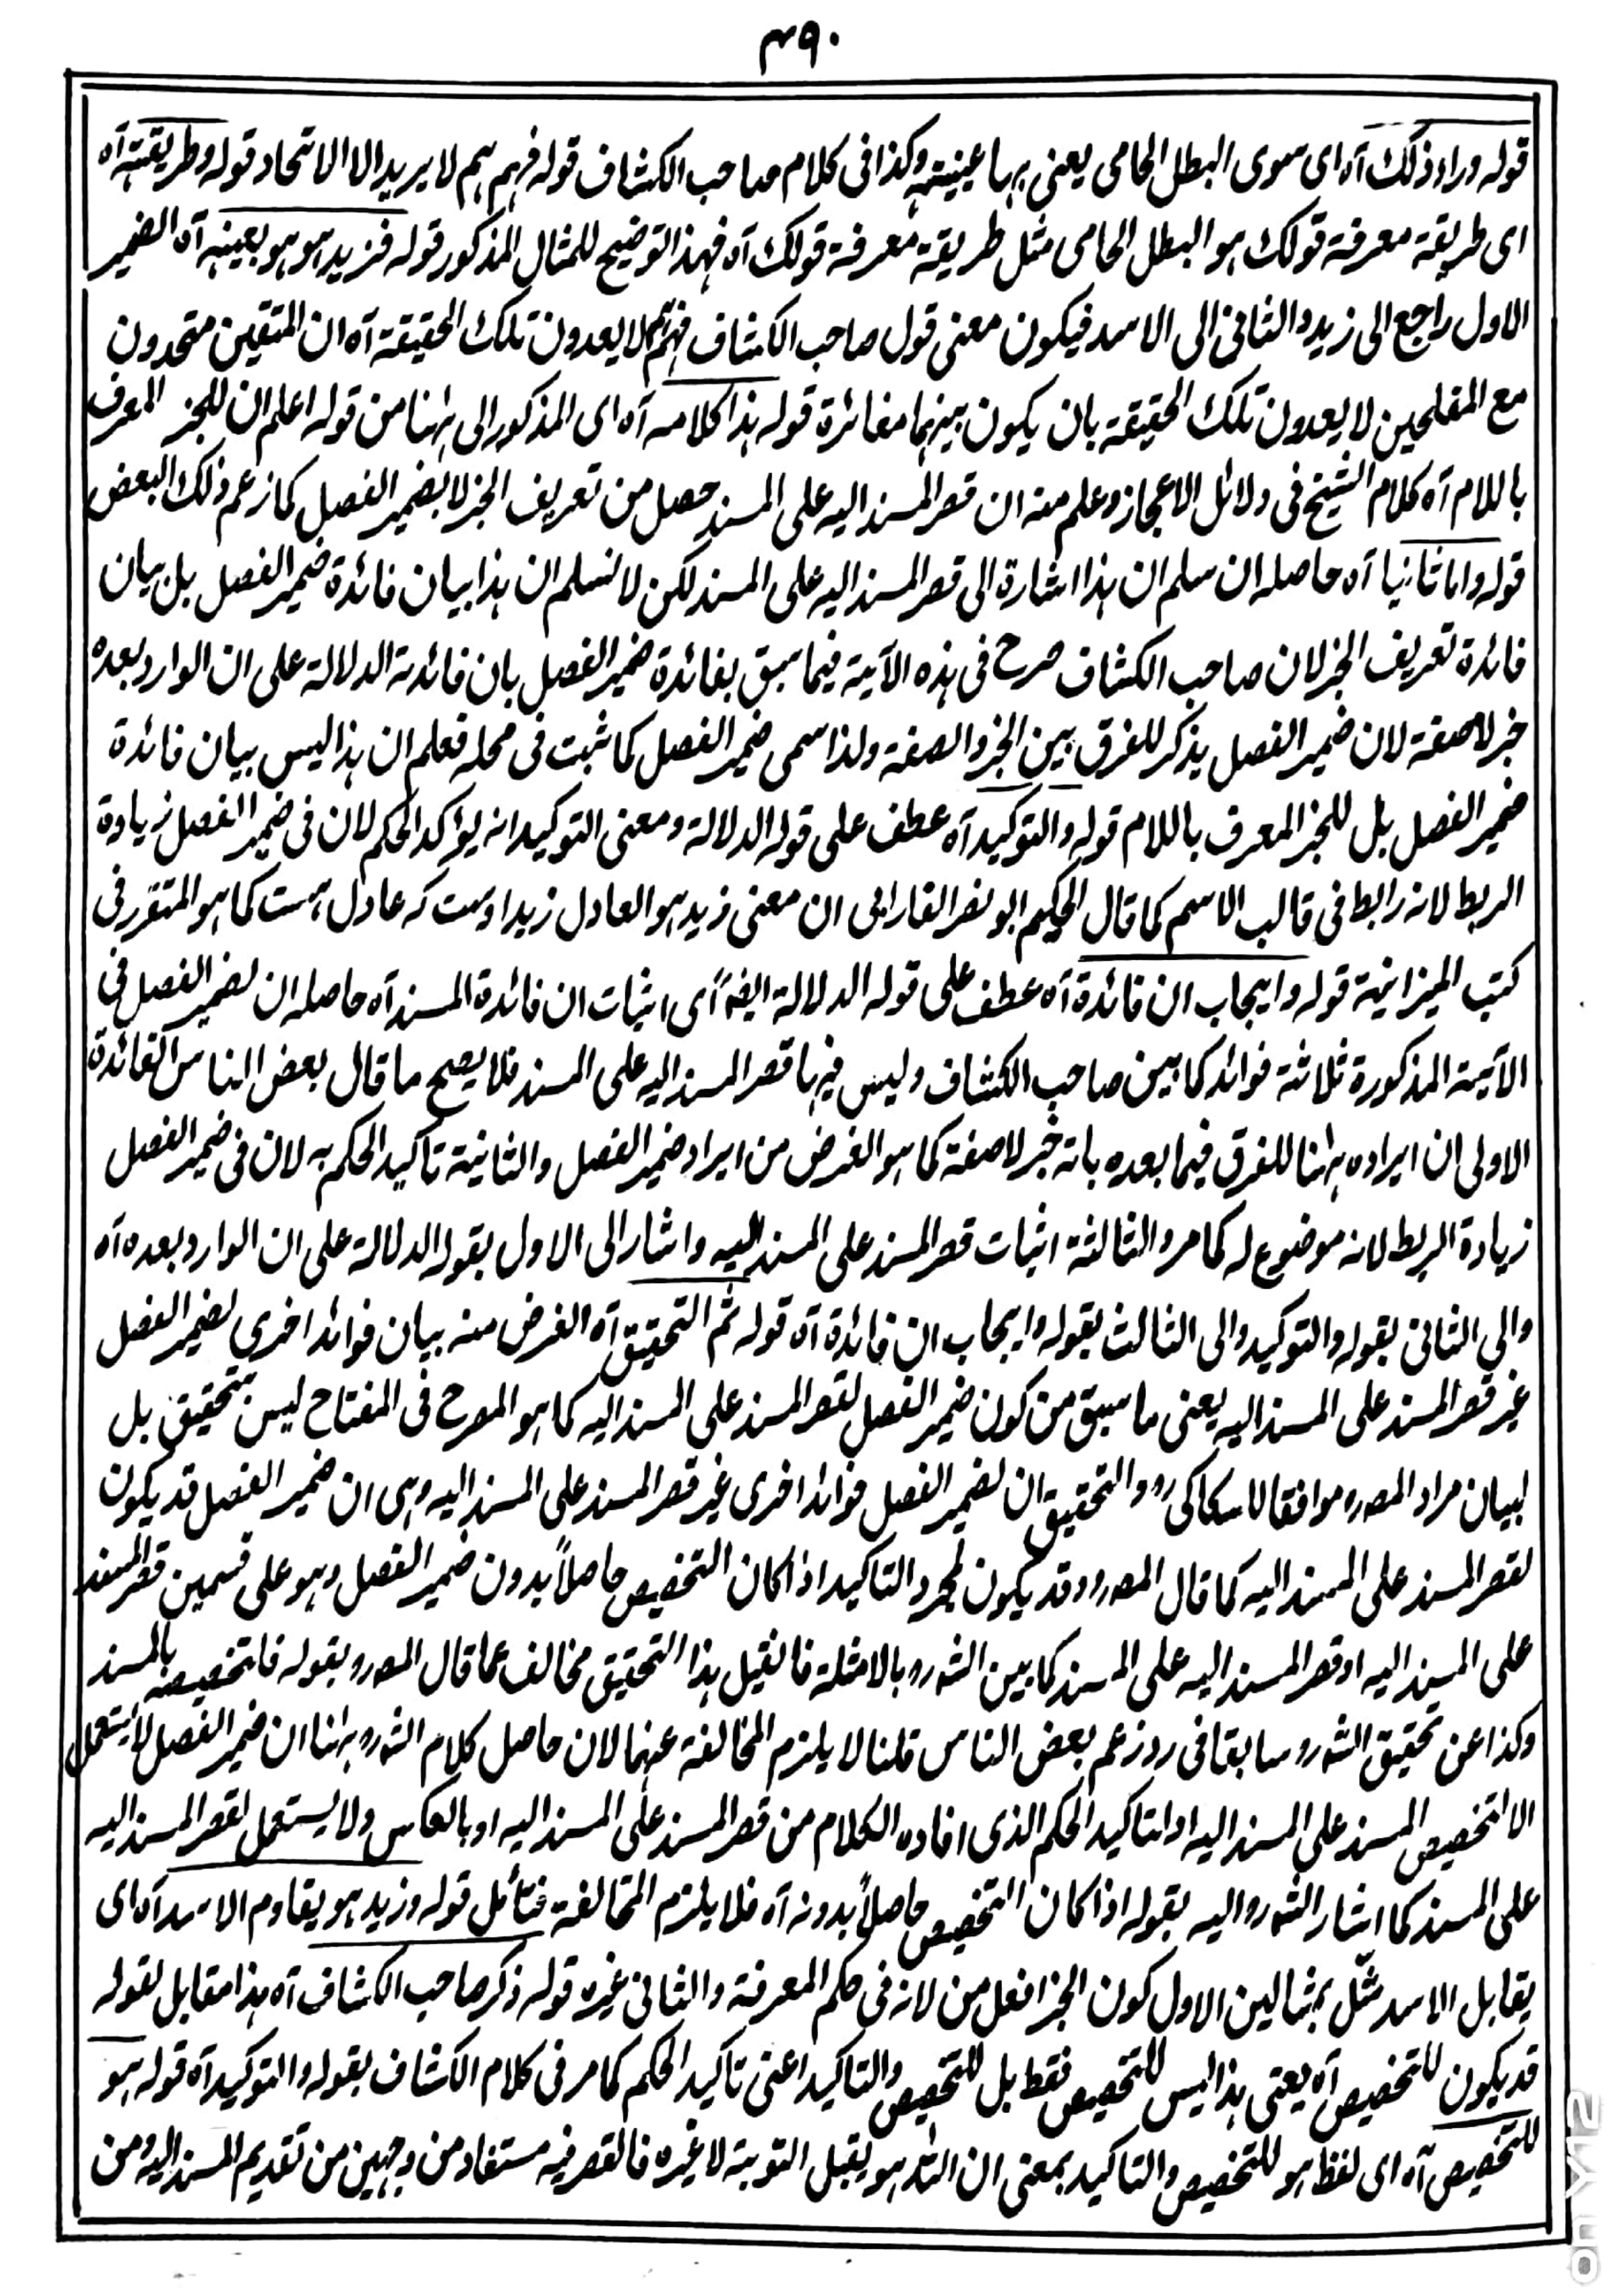 ٣٩٠
قوله وراء ذلك آه اى سوى البطل الحامى يعنى بهاعينيته وكذا فى كلام صاحب الكشاف قوله فهم هم لا يريد الا الاتحاد قوله وطريقته آه
اى طريقة معرفة قولك هو البطل الحامى مثل طريقة معرفة قولك آه فهذا توضيح للمثال المذكور قوله فزيد هو هو بعينه آه الضمير
الاول راجع الى زيد والثانى الى الاسد فيكون معنى قول صاحب الكشاف فهم هم لا يعدون تلك الحقيقة آه ان المتقين متحدون
مع المفلحين لا يعدون تلك الحقيقة بان يكون بينهما مغائرة قوله هذا كلامه آه اى المذكور الى ههنا من قوله اعلم ان للخبر المعرف
باللام آه كلام الشيخ فى دلائل الاعجاز وعلم منه ان قصر المسند اليه على المسند حصل من تعريف الخبر لا بضمير الفصل كما زعم ذلك البعض
قوله واما ثانيا آه حاصله ان سلم ان هذا اشارة الى قصر المسند اليه على المسند لكن لا نسلم ان هذا بيان فائدة ضمير الفصل بل بيان
فائدة تعريف الخبر لان صاحب الكشاف صرح فى هذه الآية فيما سبق بفائدة ضمير الفصل بان فائدته الدلالة على ان الوارد بعده
خبر لا صفة لان ضمير الفصل يذكر للفرق بين الخبر والصفة ولذا سمى ضمير الفصل كما ثبت فى محله فعلم ان هذا ليس بيان فائدة
ضمير الفصل بل للخبر المعرف باللام قوله والتوكيد آه عطف على قوله الدلالة ومعنى التوكيد انه يؤكد الحكم لان فى ضمير الفصل زيادة
الربط لانه رابط فى قالب الاسم كما قال الحكيم ابو نصر الفارابى ان معنى زيد هو العادل زيد اوست كه عادل هست كما هو المتقرر فى
كتب الميزانية قوله وايجاب ان فائدة آه عطف على قوله الدلالة ايضا اى اثبات ان فائدة المسند آه حاصله ان لضمير الفصل فى
الآية المذكورة ثلاثة فوائد كما بين صاحب الكشاف وليس فيها قصر المسند اليه على المسند فلا يصح ما قال بعض الناس الفائدة
الاولى ان ايراده ههنا للفرق فيما بعده بانه خبر لا صفة كما هو الغرض من ايراد ضمير الفصل والثانية تاكيد الحكم به لان فى ضمير الفصل
زيادة الربط لانه موضوع له كما مر والثالثة اثبات قصر المسند على المسند اليه واشار الى الاول بقوله الدلالة على ان الوارد بعده آه
والى الثانى بقوله والتوكيد والى الثالث بقوله وايجاب ان فائدة آه قوله ثم التحقيق آه الغرض منه بيان فوائد اخرى لضمير الفصل
غير قصر المسند على المسند اليه يعنى ما سبق من كون ضمير الفصل لقصر المسند على المسند اليه كما هو المصرح فى المفتاح ليس بتحقيق بل
لبيان مراد المصرو موافقا للسكاكى رو والتحقيق ان لضمير الفصل فوائد اخرى غير قصر المسند على المسند اليه وهى ان ضمير الفصل قد يكون
لقصر المسند على المسند اليه كما قال المصرو وقد يكون لمجرد التاكيد اذا كان التخصيص حاصلاً بدون ضمير الفصل وهو على قسمين قصر المسند
على المسند اليه او قصر المسند اليه على المسند كما بين الشرو بالامثلة فان قيل هذا التحقيق مخالف عما قال المصرو بقوله فلتخصيصه بالمسند
وكذا عن تحقيق الشرو سابقا فى رد زعم بعض الناس قلنا لا يلزم المخالفة عنهما لان حاصل كلام الشرو ههنا ان ضمير الفصل لا يستعمل
الا لتخصيص المسند على المسند اليه او لتاكيد الحكم الذى افاده الكلام من قصر المسند على المسند اليه او بالعكس ولا يستعمل لقصر المسند اليه
على المسند كما اشار الشرو اليه بقوله اذا كان التخصيص حاصلاً بدونه آه فلا يلزم المخالفة فتأمل قوله وزيد هو يقاوم الاسد آه اى
يقابل الاسد مثّل بمثالين الاول كون الخبر افعل من لانه فى حكم المعرفة والثانى غيره قوله ذكر صاحب الكشاف آه هذا مقابل لقوله
قد يكون للتخصيص آه يعنى هذا ليس للتخصيص فقط بل للتخصيص والتاكيد اعنى تاكيد الحكم كما مر فى كلام الكشاف بقوله والتوكيد آه قوله هو
للتخصيص آه اى لفظ هو للتخصيص والتاكيد بمعنى ان الله هو يقبل التوبة لا غيره فالقصر فيه مستفاد من وجهين من تقديم المسند اليه ومن